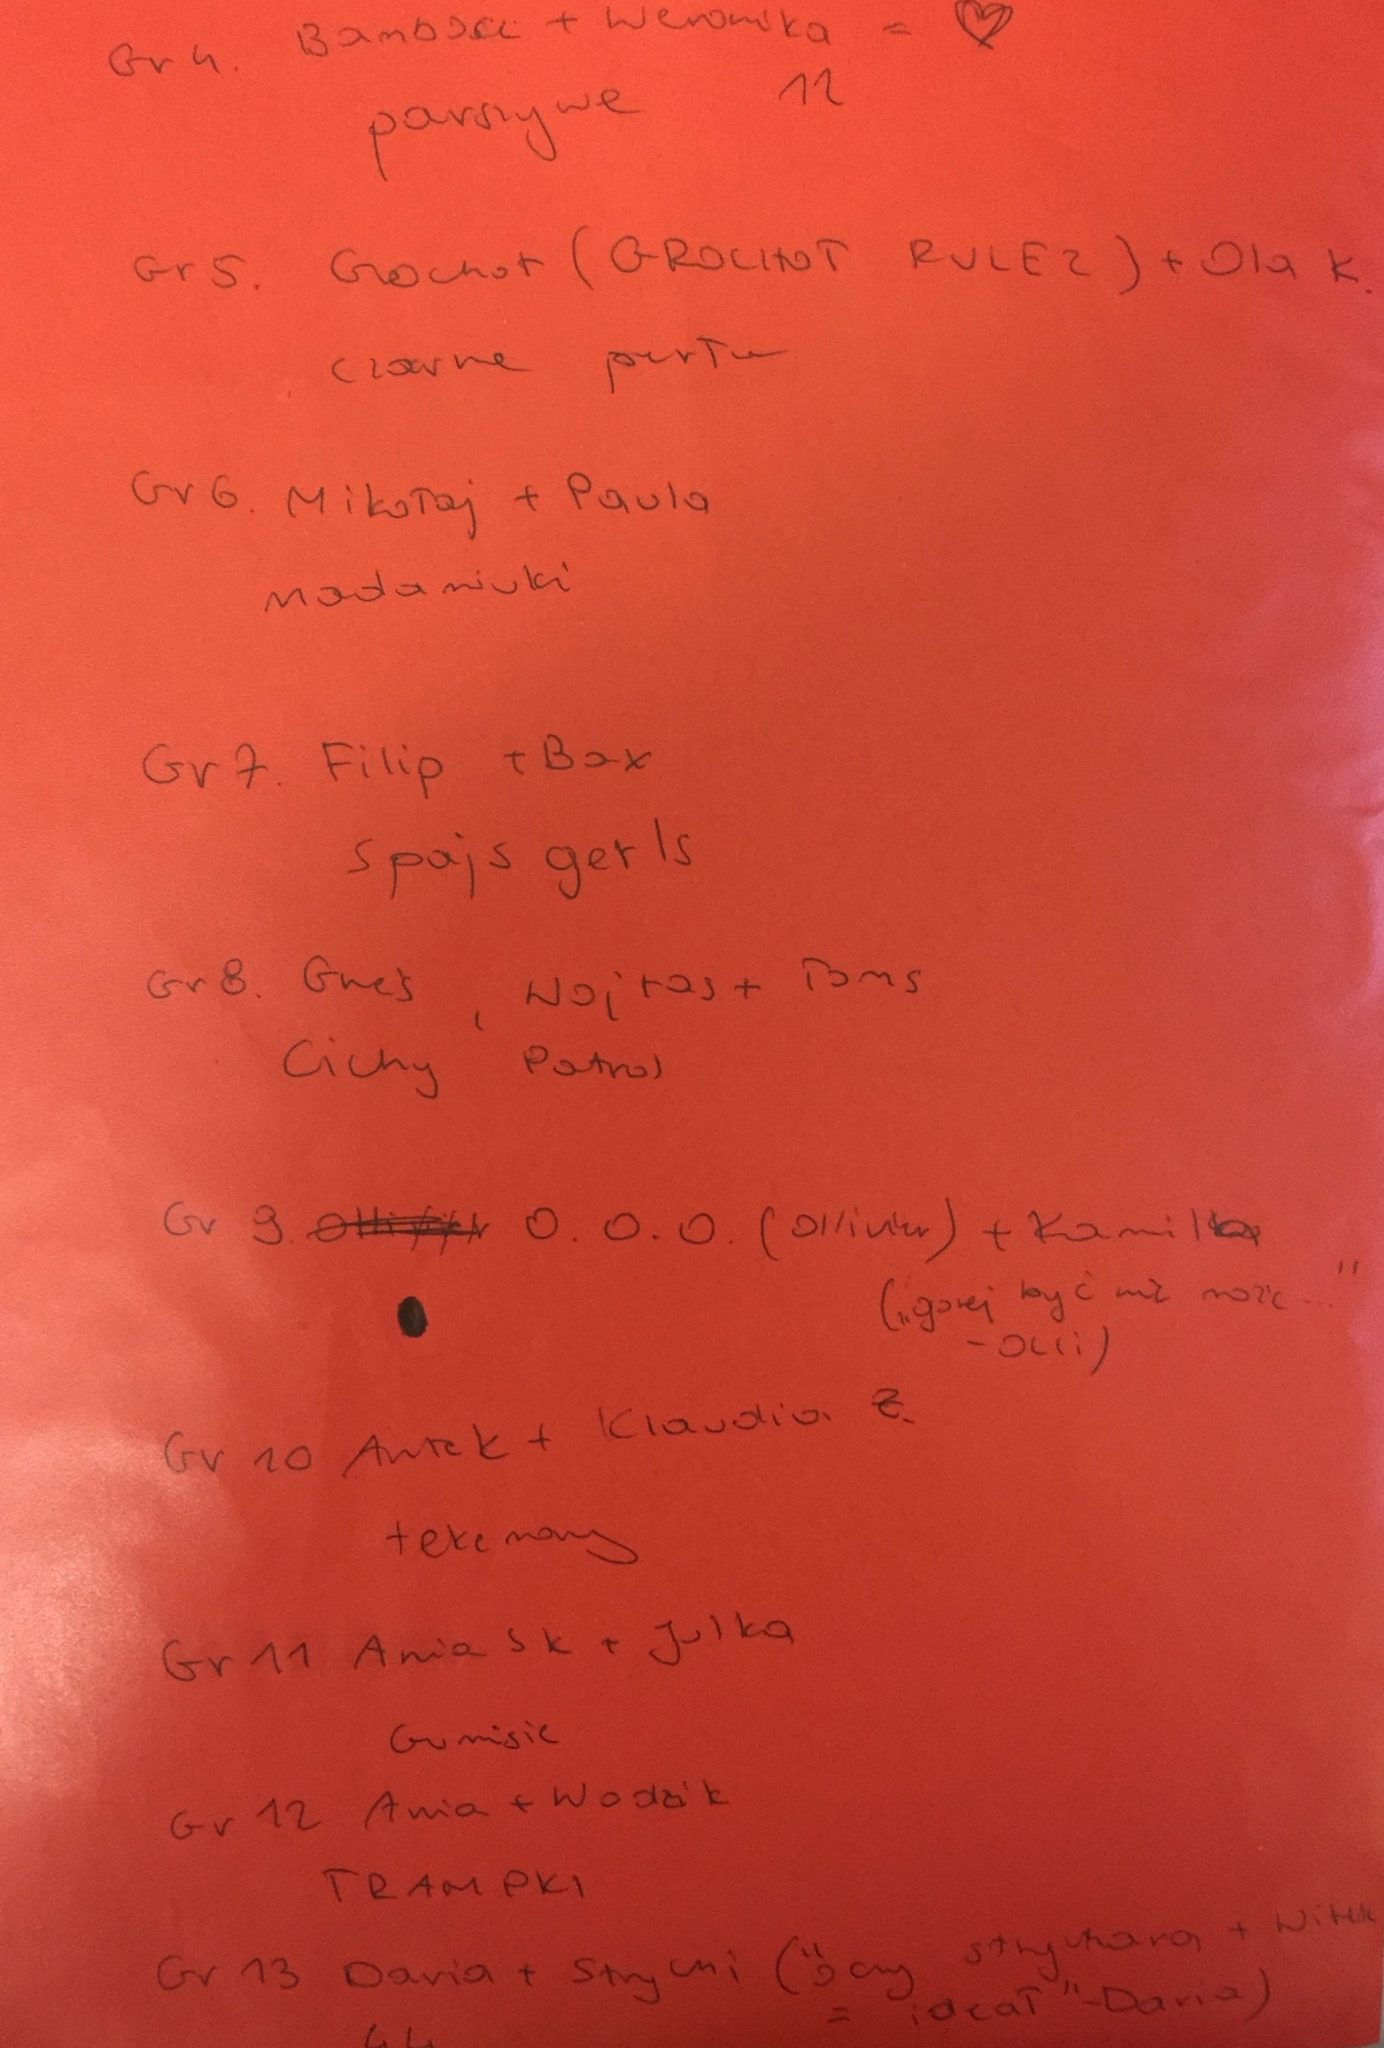 Gr 4. Bambosz + Weronika = ♡
parszywe 12
Gr 5. Grochot (GROCHOT RULEZ) + Ola K.
czarne
Gr 6. Mikołaj + Paula
madaniuki
Gr 7. Filip + Bax
spajs gerls
Gr 8. Gneś, Wojtas + Toms
Cichy Patrol
Gr 9. O. O. O. (Ollivier) + Kamilka
("gorzej być nie może..."
- Olli)
Gr 10 Antek + Klaudia Z.
tekemany
Gr 11 Ania Sk + Julka
Gumisie
Gr 12 Ania + Wodzik
TRAMPKI
Gr 13 Daria + Strychi ("oczy strychara + Witek
= ideał" - Daria)
44